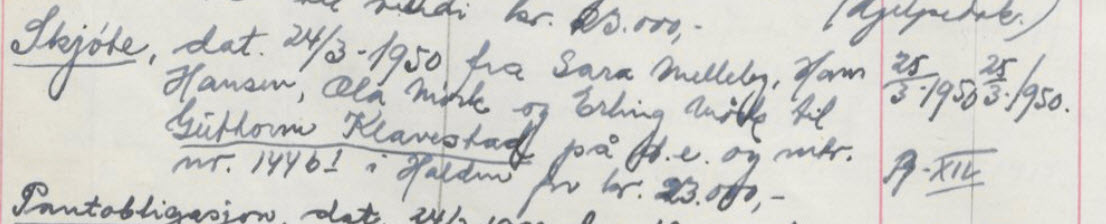 til verdi kr. 23.000,- (Hjelpedok.)
Skjøte, dat. 24/3-1950 fra Sara Melleby, Hans 25/3-1950 25/3-1950.
Hansen, Ola Mørk og Erling Mørk til
Guthorm Klavestad på d.e. og mtr.
nr. 144 b1 i Halden for kr. 23.000,-
Pantobligasjon, dat. 24/3